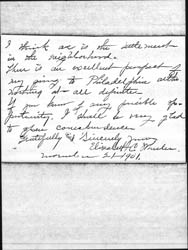 I think as is the settlement
in the neighborhood.
There is an excellent prospect of
my going to Philadelphia
nothing at all definite.
If you know of any possible op-
portunity, I shall be very glad
to your
Gratefully & Sincerely yours
Elizabeth C.
November 21-1901.